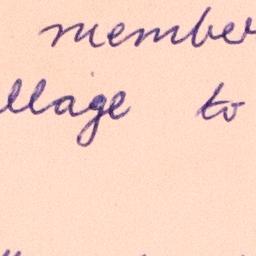 member
llage to